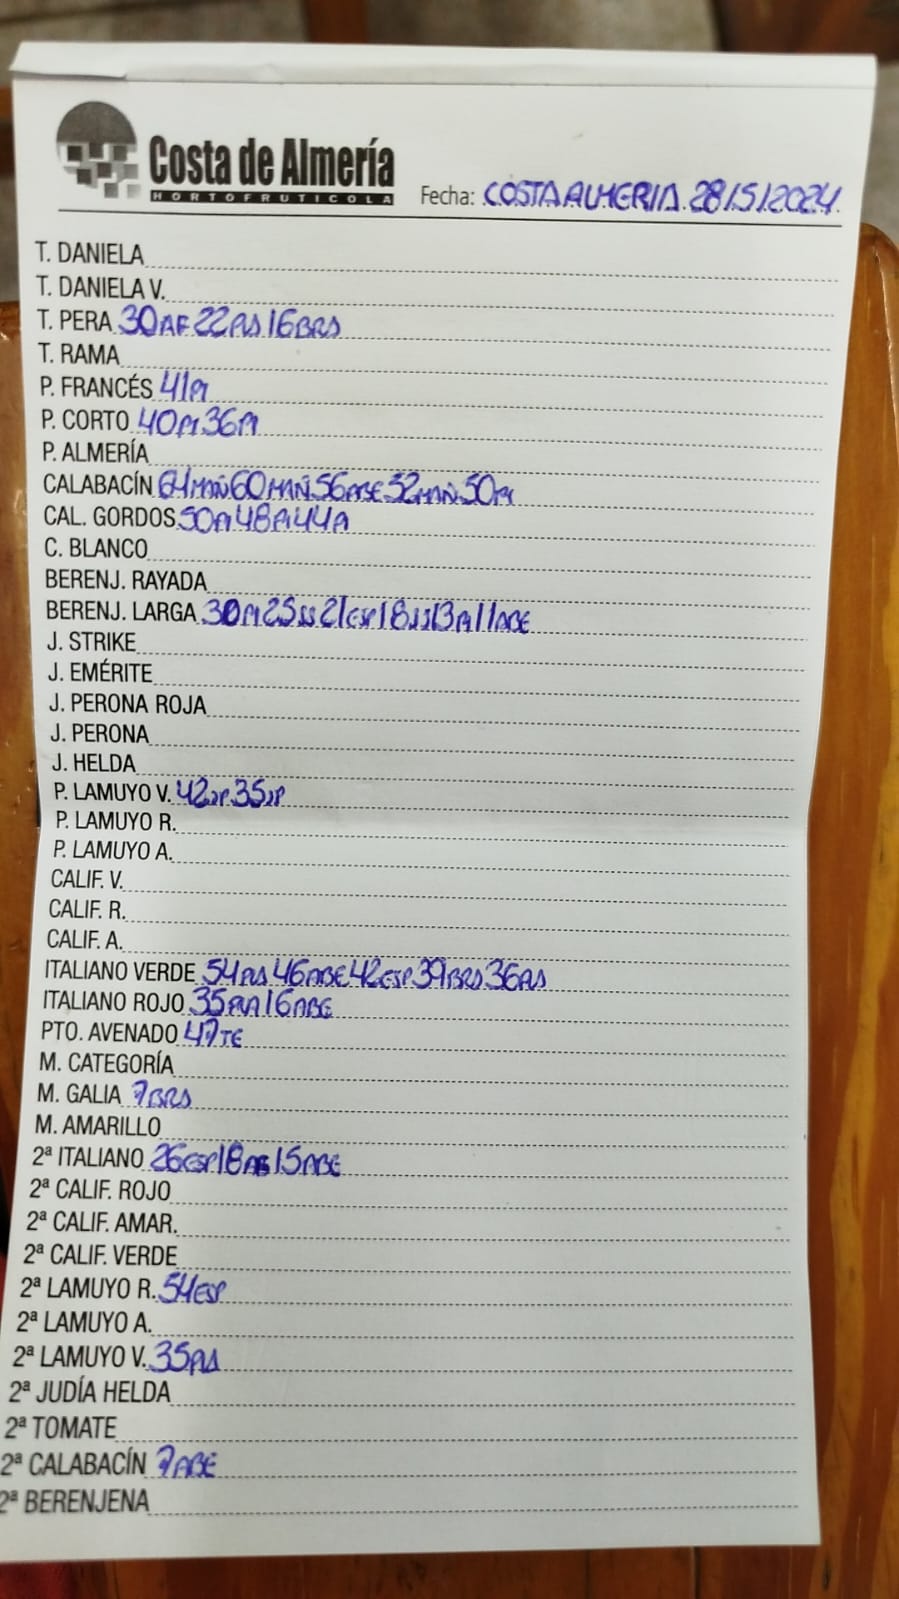 Costa de Almería
HORTOFRUTICOLA
Fecha: COSTA ALMERIA. 28/5/2024.
T. DANIELA
T. DANIELA V.
T. PERA 30AF 22 16BRS
T. RAMA
P. FRANCÉS 41
P. CORTO 40 36
P. ALMERÍA
CALABACÍN 64MAÑ 60MAÑ 56ABE 52MAÑ 50
CAL. GORDOS 50 48 44
C. BLANCO
BERENJ. RAYADA
BERENJ. LARGA 30 25 21ESP 18 13 11ABE
J. STRIKE
J. EMÉRITE
J. PERONA ROJA
J. PERONA
J. HELDA
P. LAMUYO V. 42 35
P. LAMUYO R.
P. LAMUYO A.
CALIF. V.
CALIF. R.
CALIF. A.
ITALIANO VERDE 54 46ABE 42ESP 39BRS 36
ITALIANO ROJO 35 16ABE
PTO. AVENADO 47TE
M. CATEGORÍA
M. GALIA 7BRS
M. AMARILLO
2ª ITALIANO 26ESP 18 15ABE
2ª CALIF. ROJO
2ª CALIF. AMAR.
2ª CALIF. VERDE
2ª LAMUYO R. 54ESP
2ª LAMUYO A.
2ª LAMUYO V. 35
2ª JUDÍA HELDA
2ª TOMATE
2ª CALABACÍN 7ABE
2ª BERENJENA